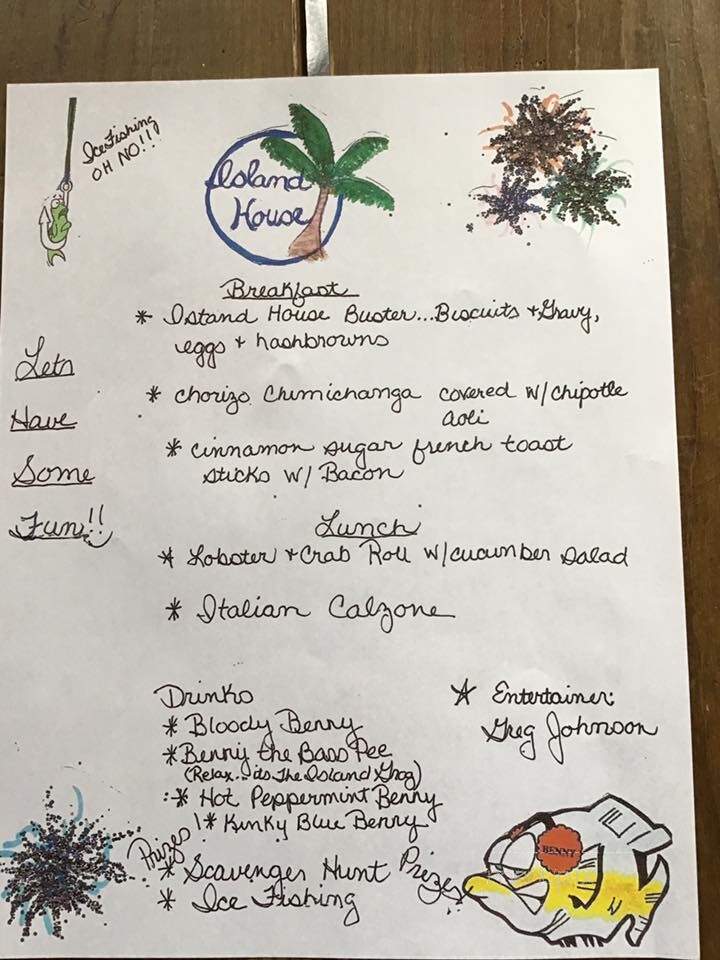 Ice Fishing
OH NO!!!
Island
House
Breakfast
* Island House Buster...Biscuits + Gravy,
eggs + hashbrowns
* Chorizo Chimichanga covered w/chipotle
aoli
* cinnamon sugar french toast
sticks w/ Bacon
Lets
Have
Some
Fun!!
Lunch
* Lobster + Crab Roll w/cucumber salad
* Italian Calzone
Drinks
* Bloody Benny
* Benny the Bass Pee
(Relax...its The Island Grog)
* Hot Peppermint Benny
* Kinky Blue Benny
* Entertainer:
Greg Johnson
Prizes
* Scavenger Hunt Prizes
* Ice Fishing
BENNY